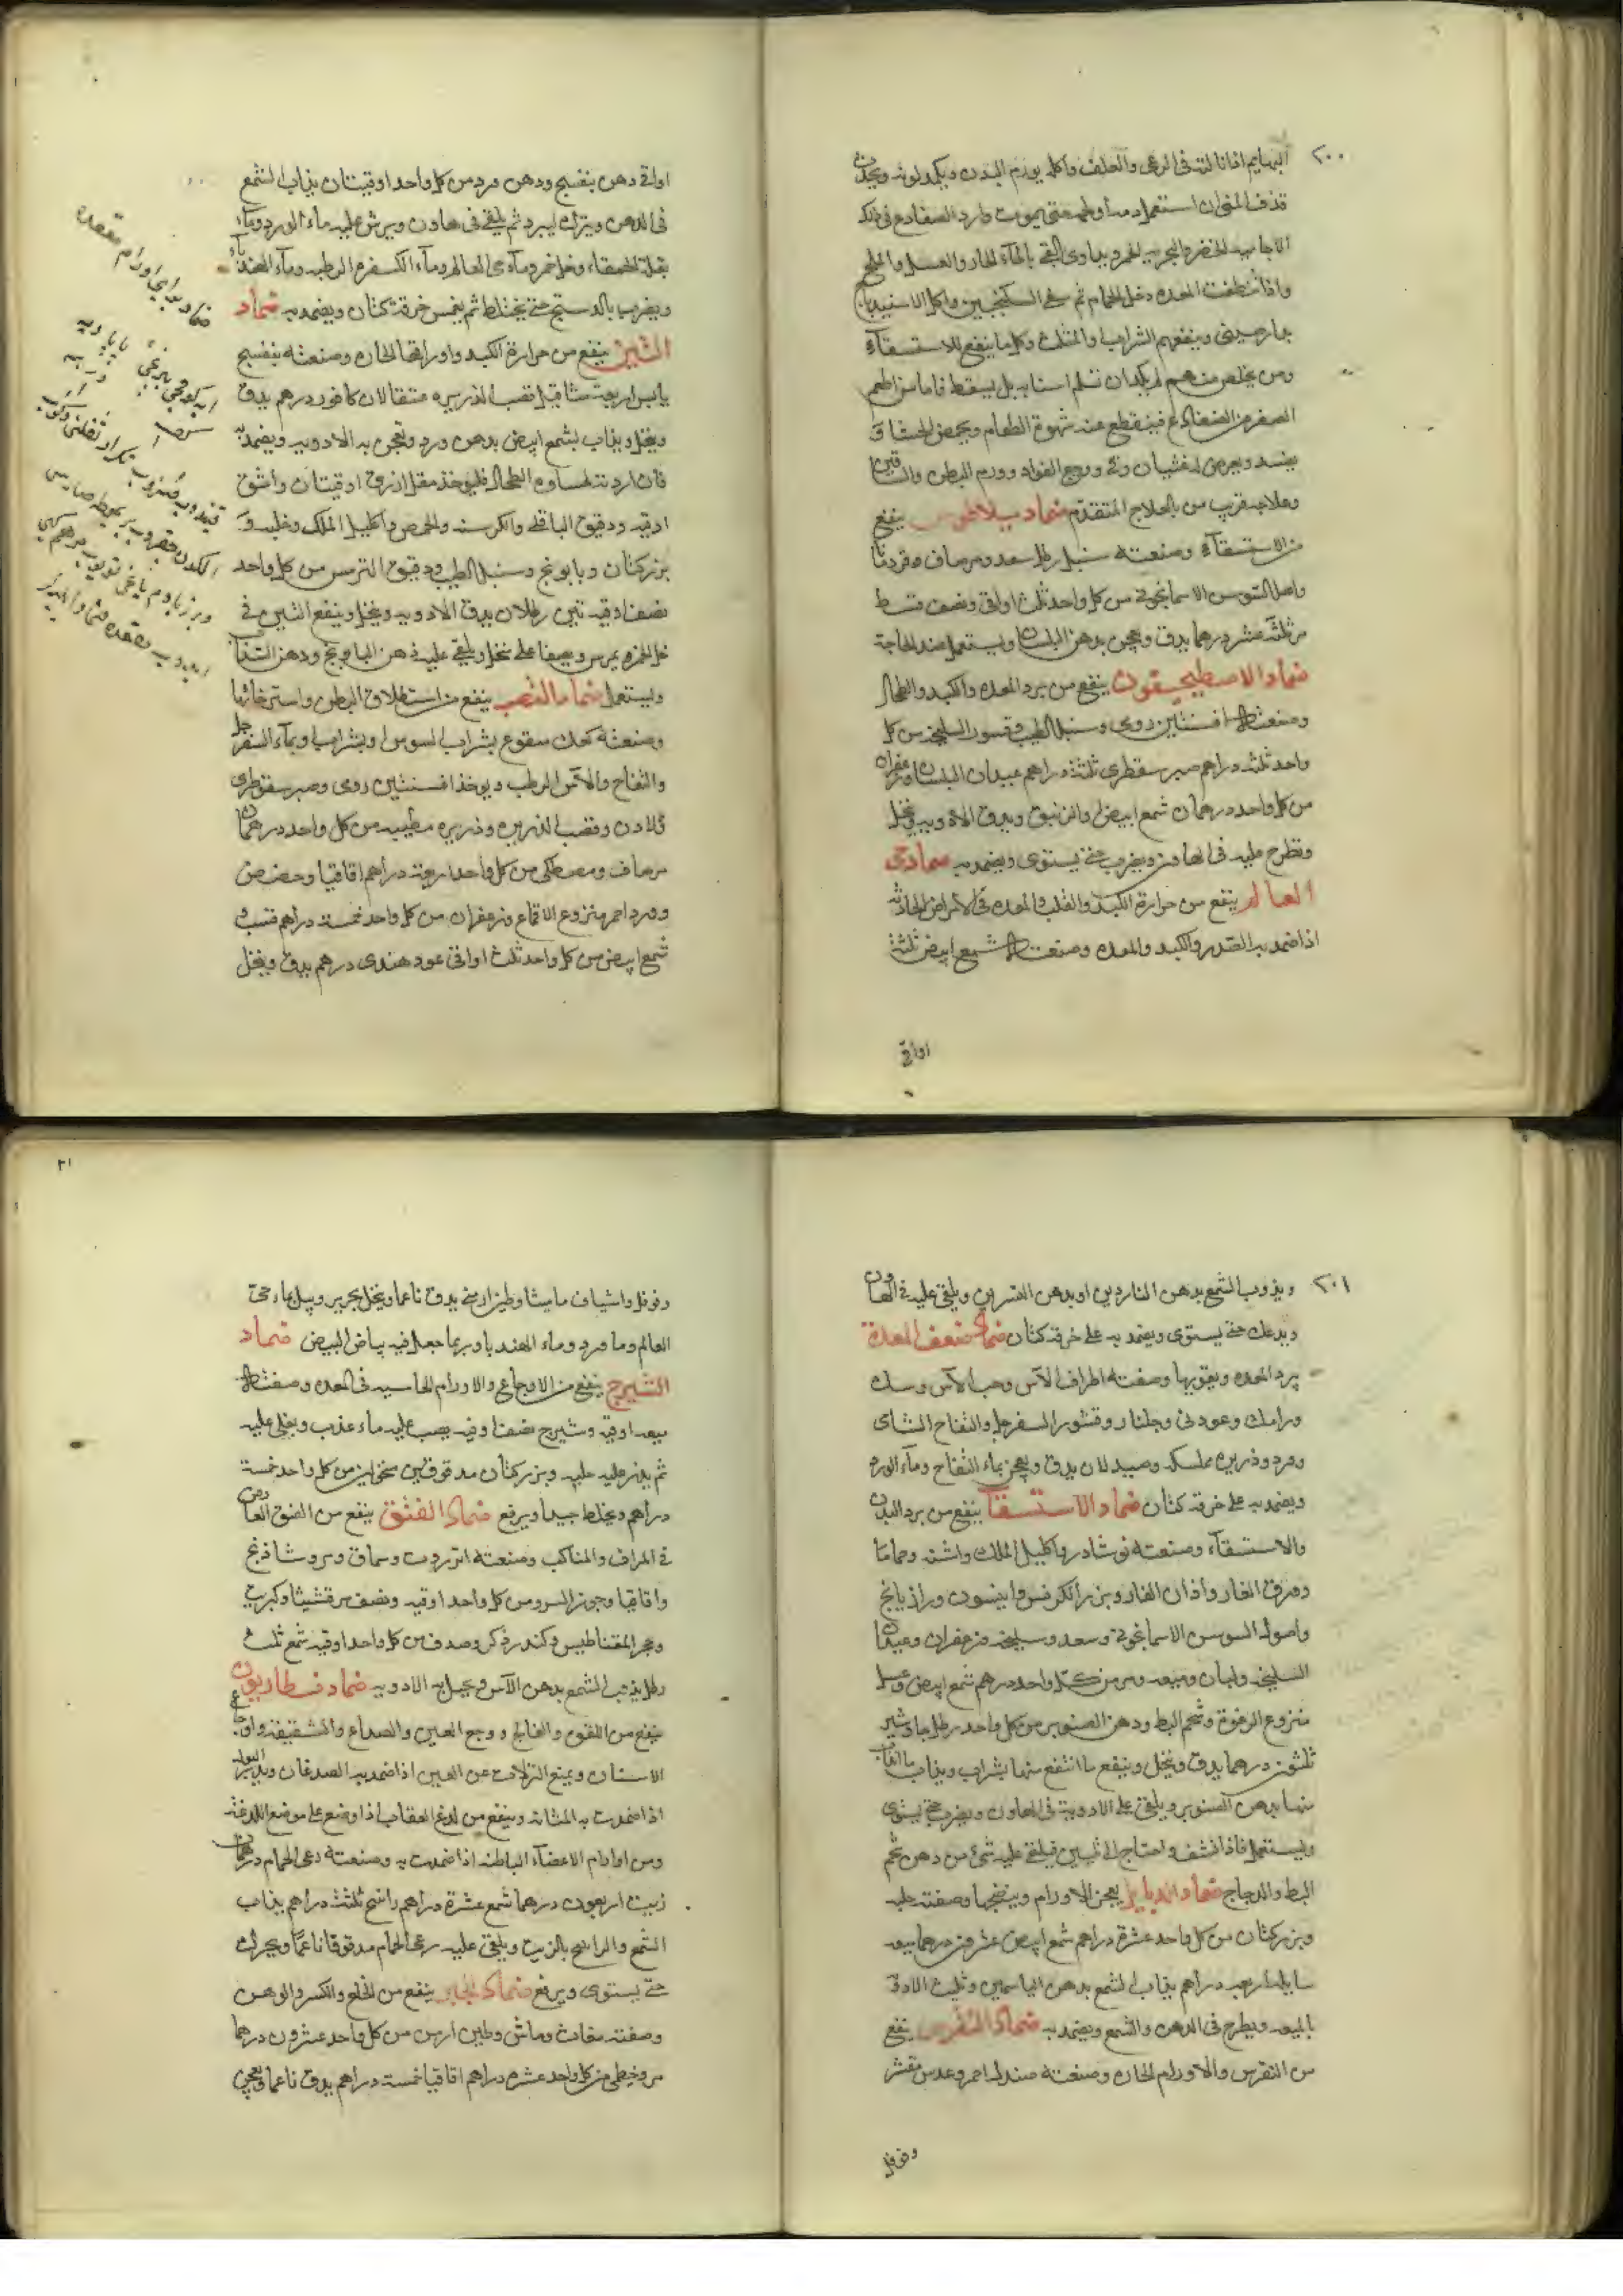 ٢٠٠
البهايم اذا نالته في الرعي والعلف واكله يورم البدن ويكمد لونه ويحدث
قذف المني ان استعمل منه حتى يموت وارد الضفادع في ذلك
الاجامية الخضر والبحرية الحمر ويداوى بالقي بالماء الحار والعسل والملح
واذا نظفت المعده دخل الحمام ثم سقى السكنجبين واكل الاسفيدباج
بدارصيني وينفعهم الشراب والمثلث وكلما ينفع للاستسقآء
ومن يخلص منهم لم يكد ان تسلم اسنانه بل يسقط فاما من اطعم
الصفر من الضفادع فينقطع عنه شهوة الطعام ويحمض الجشا و
يفسد ويعرض له غشيان وقي ووجع الفواد وورم البطن والساقين
وعلاجه قريب من العلاج المتقدم ضماد ينفع
من الاستسقآء وصنعته سنبل رطل سعد ومرصاف وقردمانا
واصل السوسن الاسمانجوني من كل واحد ثلث اواقي ونصف قسط
مر ثلثة عشر درهما يدق ويعجن بدهن البلسان ويستعمل عند الحاجة
ضماد الاصطمحيقون ينفع من برد المعده والكبد والطحال
وصنعته افسنتين رومى وسنبل الطيب وقسور السليخه من كل
واحد ثلثه دراهم صبر سقطرى ثلثة دراهم عيدان البلسان وزعفران
من كل واحد درهمان شمع ابيض اواقي زنبق ويدق الادويه وينخل
وتطرح عليه في الهاون ويضرب حتى يستوى ويضمد به ضماد حى
العالم ينفع من حرارة الكبد والقلب والمعده في الامراض الحادثه
اذا ضمد به الصدر والكبد والمعده وصنعته شمع ابيض ثلثة
اواقي
اواقي دهن بنفسج ودهن ورد من كل واحد اوقيتان يذاب الشمع
في الدهن ويترك ليبرد ثم يلقى في هاون ويرش عليه ماء الورد وماء
بقلة الحمقاء وخل خمر ومآء حى العالم ومآء الكسفره الرطبه ومآء الهندباء
ويضرب بالدستج حتى يختلط ثم يغمس خرقة كتان ويضمد به ضماد
التين ينفع من حرارة الكبد واورامها الحاره وصنعته بنفسج
يابس اربعة مثاقيل قصب الذريره مثقالان كافور درهم يدق
وينخل ويذاب بشمع ابيض بدهن ورد وتعجن به الادويه ويضمد به
فان اردته لقساوه الطحال فليوخذ مقل ازرق اوقيتان واشق
اوقيه ودقيق الباقلى والكرسنه والحمص واكليل الملك وحلبه و
بزركتان وبابونج وسنبل الطيب ودقيق الترمس من كل واحد
نصف اوقيه تين رطلان يدق الادويه وينخل وينقع التين في
خل الخمر ويمرس ويصفا على منخل ويلقى عليه دهن البابونج ودهن السذاب
ويستعمل ضماد القصب ينفع من استطلاق البطن واسترخائها
وصنعته كعك منقوع بشراب السوس او بشراب او بماء السفرجل
والتفاح والآس الرطب ويوخذ افسنتين رومى وصبر سقوطرى
ولادن وقصب الذريره وذريره مطيبه من كل واحد درهمان
مرصاف ومصطكى من كل واحد اربعة دراهم اقاقيا وحضض
وورد احمر منزوع الاقماع وزعفران من كل واحد خمسة دراهم قسب و
شمع ابيض من كل واحد ثلث اواقي عود هندى درهم يدق وينخل
٢٠١
ويذوب الشمع بدهن الناردين او بدهن النسرين ويلقى عليه في الهاون
ويدعك حتى يستوى ويضمد به على خرقة كتان ضماد ضعف المعدة
يبرد المعده ويقويها وصفته اطراف الآس وحب الآس وسك
ورامك وعود ني وجلنار وقشور السفرجل والتفاح الشامى
وورد وذريره ممسكه وصندلان يدق ويعجن بماء التفاح ومآء الورد
ويضمد به على خرقة كتان ضماد الاستسقآ ينفع من برد البدن
والاستسقآء وصنعته نوشادر واكليل الملك واشنه وحماما
وورق الغار وآذان الفار وبزر الكرفس وانيسون ورازيانج
واصول السوسن الاسمانجوني وسعد وسليخه وزعفران وعيدان
السليخه ولبان وميعه ومر من كل واحد درهم شمع ابيض وعسل
منزوع الرغوة وشحم البط ودهن الصنوبر من كل واحد رطل جاوشير
ثلثون درهما يدق وينخل وينقع ما انتقع منها بشراب ويذاب ما انذاب
منها بدهن الصنوبر ويلقى على الادوية في الهاون ويضرب حتى يستوى
ويستعمل فاذا نشف واحتاج الى تليين فيلقى عليه شئ من دهن شحم
البط والدجاج ضماد يفجر الاورام وينضجها وصفته حلبه
وبزركتان من كل واحد عشرة دراهم شمع ابيض عشرون درهما ميعه
سايله اربعه دراهم يذاب الشمع بدهن الياسمين وتليث الادويه
بالميعه ويطرح في الدهن والشمع ويضمد به ضماد النقرس ينفع
من النقرس والاورام الحاره وصنعته صندل احمر وعدس مقشر
وفوفل
٢١
وفوفل واشياف ماميثا وطين ارمني يدق ناعما وينخل بحرير ويبل بماء حى
العالم وماورد وماء الهندبا وربما جعل فيه بياض البيض ضماد
الشيرج ينفع من الاوجاع والاورام الجاسيه في المعده وصفته
ميعه اوقيه وشيرج نصف اوقيه يصب عليه ماء عذب ويغلى عليه
ثم يذر عليه حلبه وبزركتان مدقوقين منخولين من كل واحد خمسة
دراهم ويخلط جيدا ويرفع ضماد الفتق ينفع من الفتق العارض
في المراق والمناكب وصنعته انزروت وسماق ومر وشاذنج
واقاقيا وجوز السرو من كل واحد اوقيه ونصف مرقشيثا وكبريت
وحجر المقناطيس وكندر ذكر وصدف من كل واحد اوقيه شمع ثلث
رطل يذوب الشمع بدهن الآس ويجبل به الادويه ضماد
ينفع من اللقوه والفالج ووجع العين والصداع والشقيقة واوجاع
الاسنان ويمنع النزلات عن العين اذا ضمد به الصدغان ويدر البول
اذا ضمدت به المثانه وينفع من لدغ العقارب اذا وضع على موضع اللدغة
ومن اورام الاعضآء الباطنه اذا ضمدت به وصنعته رعى الحمام درهمان
زيت اربعون درهما شمع عشرة دراهم راتنج ثلثة دراهم يذاب
الشمع والراتنج بالزيت ويلقى عليه رعى الحمام مدقوقا ناعما ويحرك
حتى يستوى ويرفع ضماد الجبر ينفع من الخلع والكسر والوهن
وصفته مغاث وماش وطين ارمن من كل واحد عشرون درهما
مر وخطمى من كل واحد عشره دراهم اقاقيا خمسة دراهم يدق ناعما ويعجن